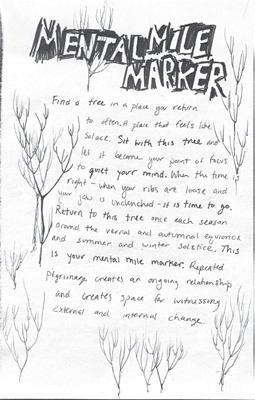 MENTAL MILE
MARKER
Find a tree in a place you return
to often. A place that feels like
solace. Sit with this tree and
let it become your point of focus
to quiet your mind. When the time is
right - when your ribs are loose and
your jaw is unclenched - it is time to go.
Return to this tree once each season
around the vernal and autumnal equinox
and summer and winter solstice. This
is your mental mile marker. Repeated
pilgrimage creates an ongoing relationship
and creates space for witnessing
external and internal change.